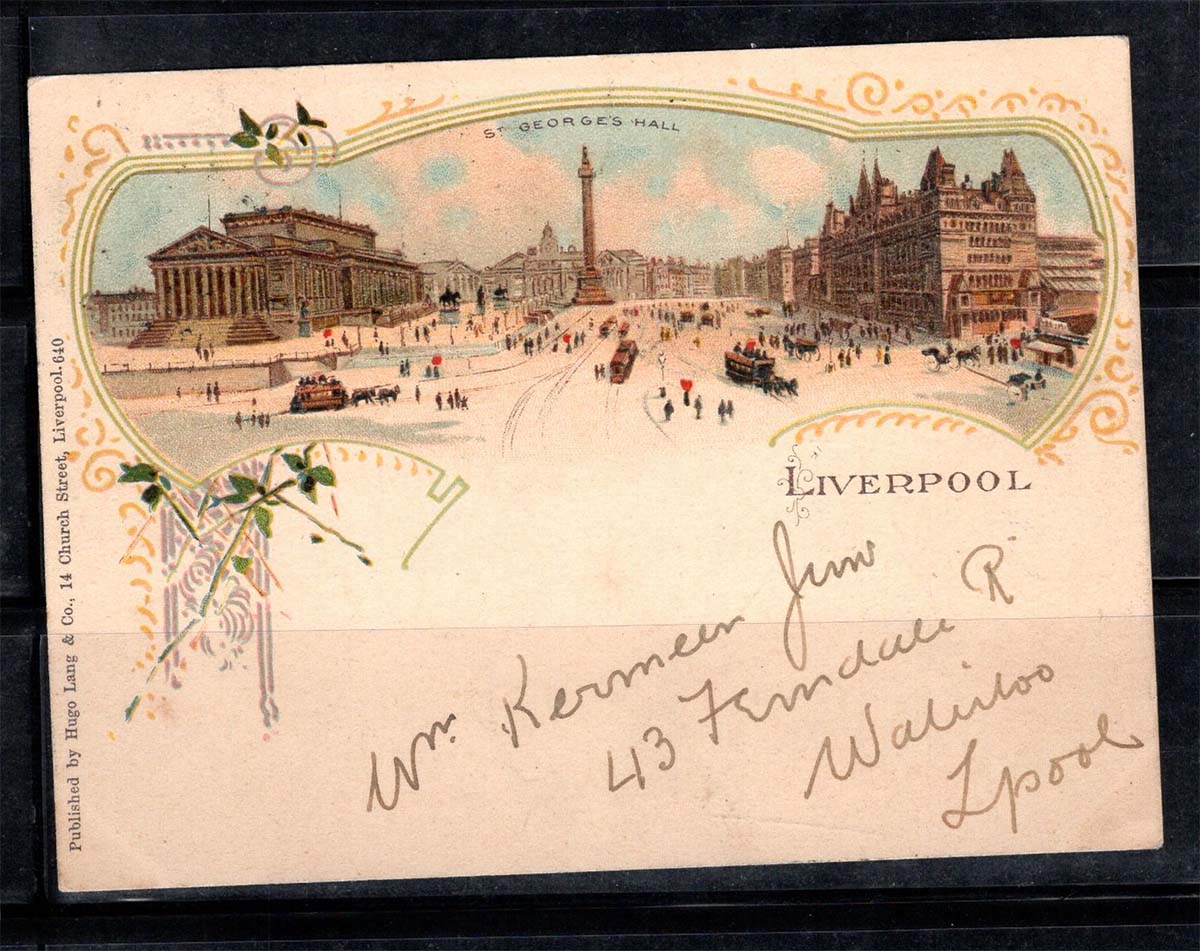 ST GEORGE'S HALL
LIVERPOOL
Wm. Kermeen Junr
43 Ferndale Rd
Waterloo
Lpool
Published by Hugo Lang & Co., 14 Church Street, Liverpool. 640